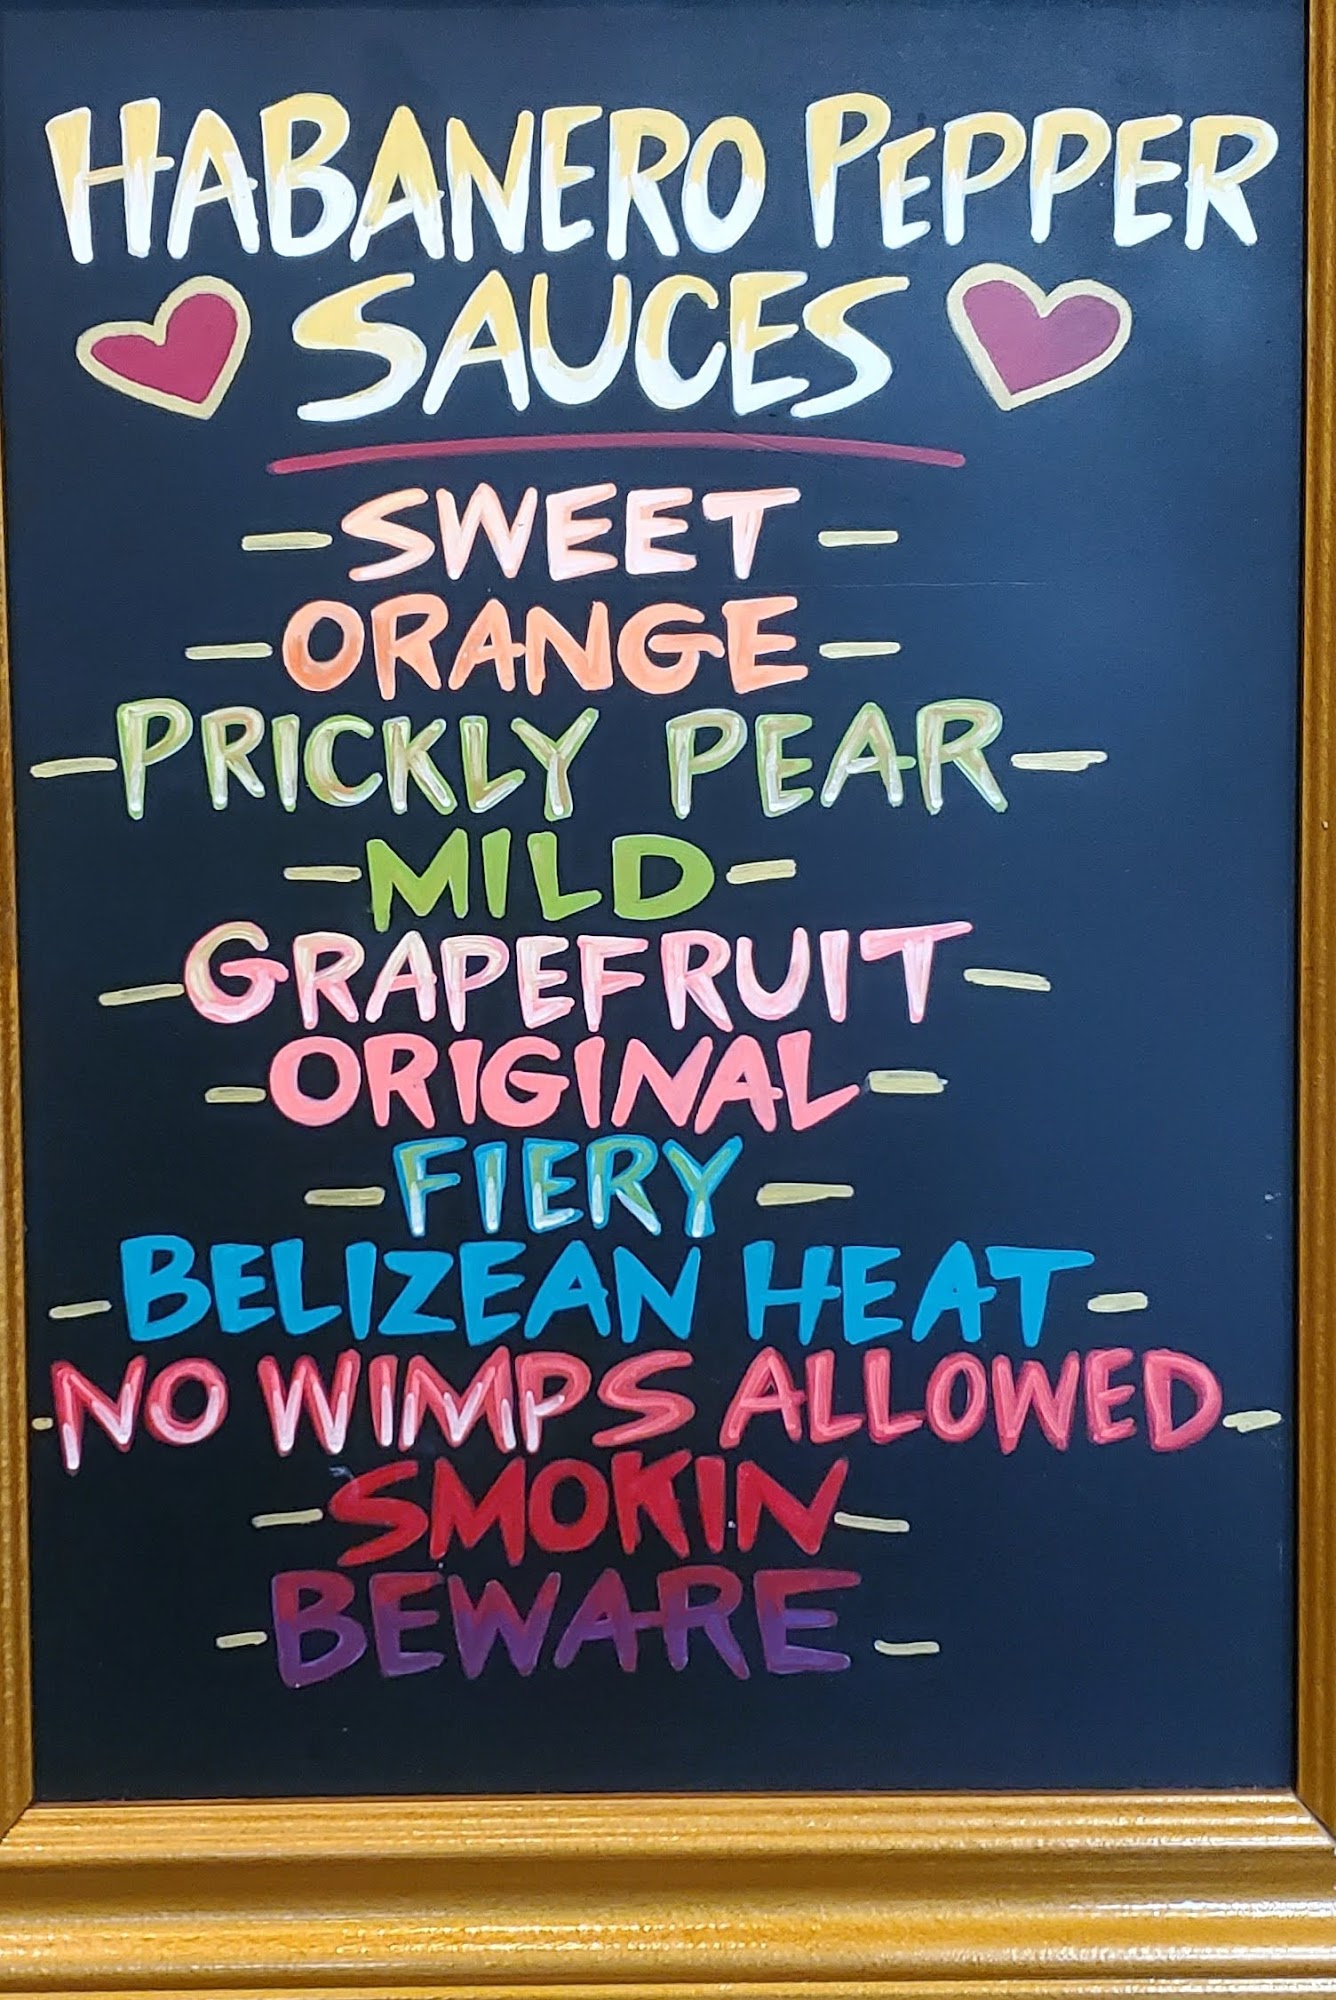 HABANERO PEPPER
SAUCES
- SWEET -
- ORANGE -
- PRICKLY PEAR -
- MILD -
- GRAPEFRUIT -
- ORIGINAL -
- FIERY -
- BELIZEAN HEAT -
- NO WIMPS ALLOWED -
- SMOKIN -
- BEWARE -